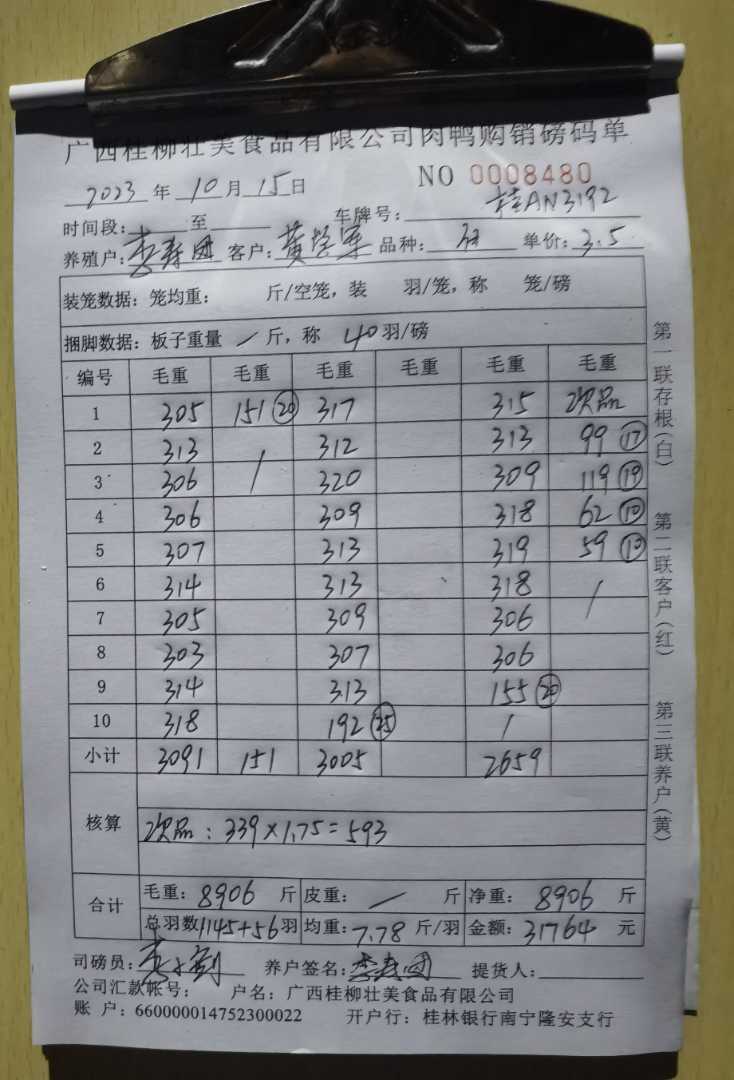 广西桂柳壮美食品有限公司肉鸭购销磅码单
2023年10月15日 NO 0008480
时间段: 至 车牌号: 桂AN3192
养殖户: 李寿团 客户: 黄 军 品种: 单价: 3.5
装笼数据: 笼均重: 斤/空笼, 装 羽/笼, 称 笼/磅
捆脚数据: 板子重量 / 斤, 称 40羽/磅
编号 毛重 毛重 毛重 毛重 毛重 毛重
1 305 151 ⑳ 317 315 次品
2 313 / 312 313 99 ⑰
3 306 320 309 119 ⑲
4 306 309 318 62 ⑩
5 307 313 319 59 ⑩
6 314 313 318 /
7 305 309 306
8 303 307 306
9 314 313 155 ⑳
10 318 192 ㉕ /
小计 3091 151 3005 2659
核算 次品: 339×1.75=593
合计 毛重: 8906 斤 皮重: / 斤 净重: 8906 斤
总羽数1145+56羽 均重: 7.78 斤/羽 金额: 31764 元
司磅员: 养户签名: 李寿团 提货人:
公司汇款帐号: 户名: 广西桂柳壮美食品有限公司
账 户: 660000014752300022 开户行: 桂林银行南宁隆安支行
第一联存根(白) 第二联客户(红) 第三联养户(黄)